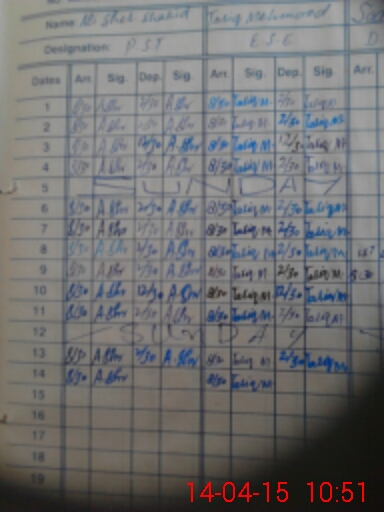 Name Sher Shahid Tariq Mehmood
Designation: P.S.T E.S.E
Dates Arr. Sig. Dep. Sig. Arr. Sig. Dep. Sig. Arr.
1 8/30 A.Shr 2/30 A.Shr 8/30 Tariq M. 2/30 Tariq M.
2 8/30 A.Shr 2/30 A.Shr 8/30 Tariq M. 2/30 Tariq M.
3 8/30 A.Shr 12/30 A.Shr 8/30 Tariq M. 12/30 Tariq M
4 8/30 A.Shr 2/30 A.Shr 8/30 Tariq M. 2/30 Tariq M
5 SUNDAY
6 8/30 A.Shr 2/30 A.Shr 8/30 Tariq M 2/30 Tariq M
7 8/30 A.Shr 2/30 A.Shr 8/30 Tariq M. 2/30 Tariq M
8 8/30 A.Shr 2/30 A.Shr 8/30 Tariq M 2/30 Tariq M
9 8/30 A.Shr 2/30 A.Shr 8/30 Tariq M. 2/30 Tariq M
10 8/30 A.Shr 12/30 A.Shr 8/30 Tariq M. 12/30 Tariq M
11 8/30 A.Shr 2/30 A.Shr 8/30 Tariq M. 2/30 Tariq M
12 SUNDAY
13 8/30 A.Shr 2/30 A.Shr 8/30 Tariq M 2/30 Tariq M
14 8/30 A.Shr 8/30 Tariq M
15
16
17
18
19
14-04-15 10:51